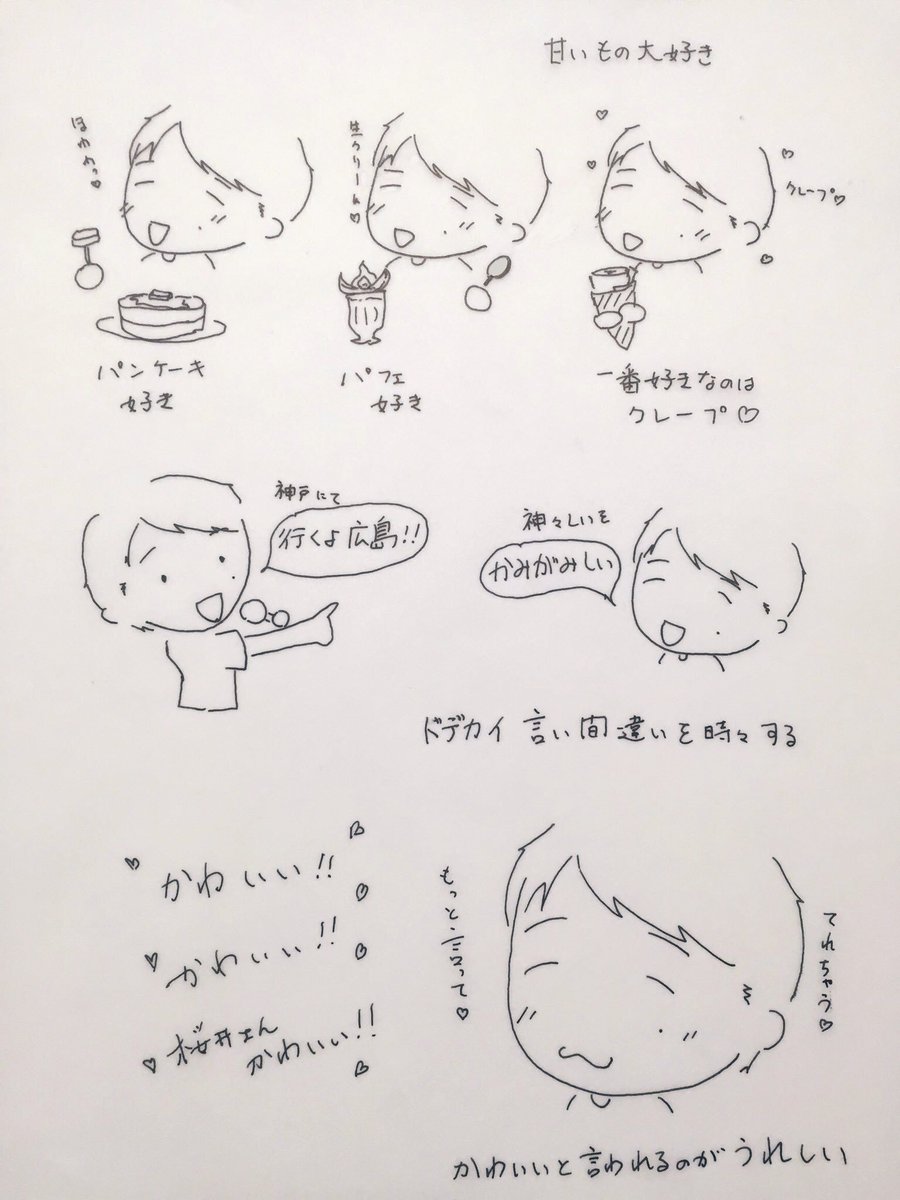 甘いもの大好き
ほわわっ♡
生クリーム♡
クレープ♡
パンケーキ
好き
パフェ
好き
一番好きなのは
クレープ♡
神戸にて
行くよ広島!!
神々しいを
かみがみしい
ドデカイ言い間違いを時々する
かわいい!!
かわいい!!
桜井さん
かわいい!!
もっと言って♡
てれちゃう♡
かわいいと言われるのがうれしい